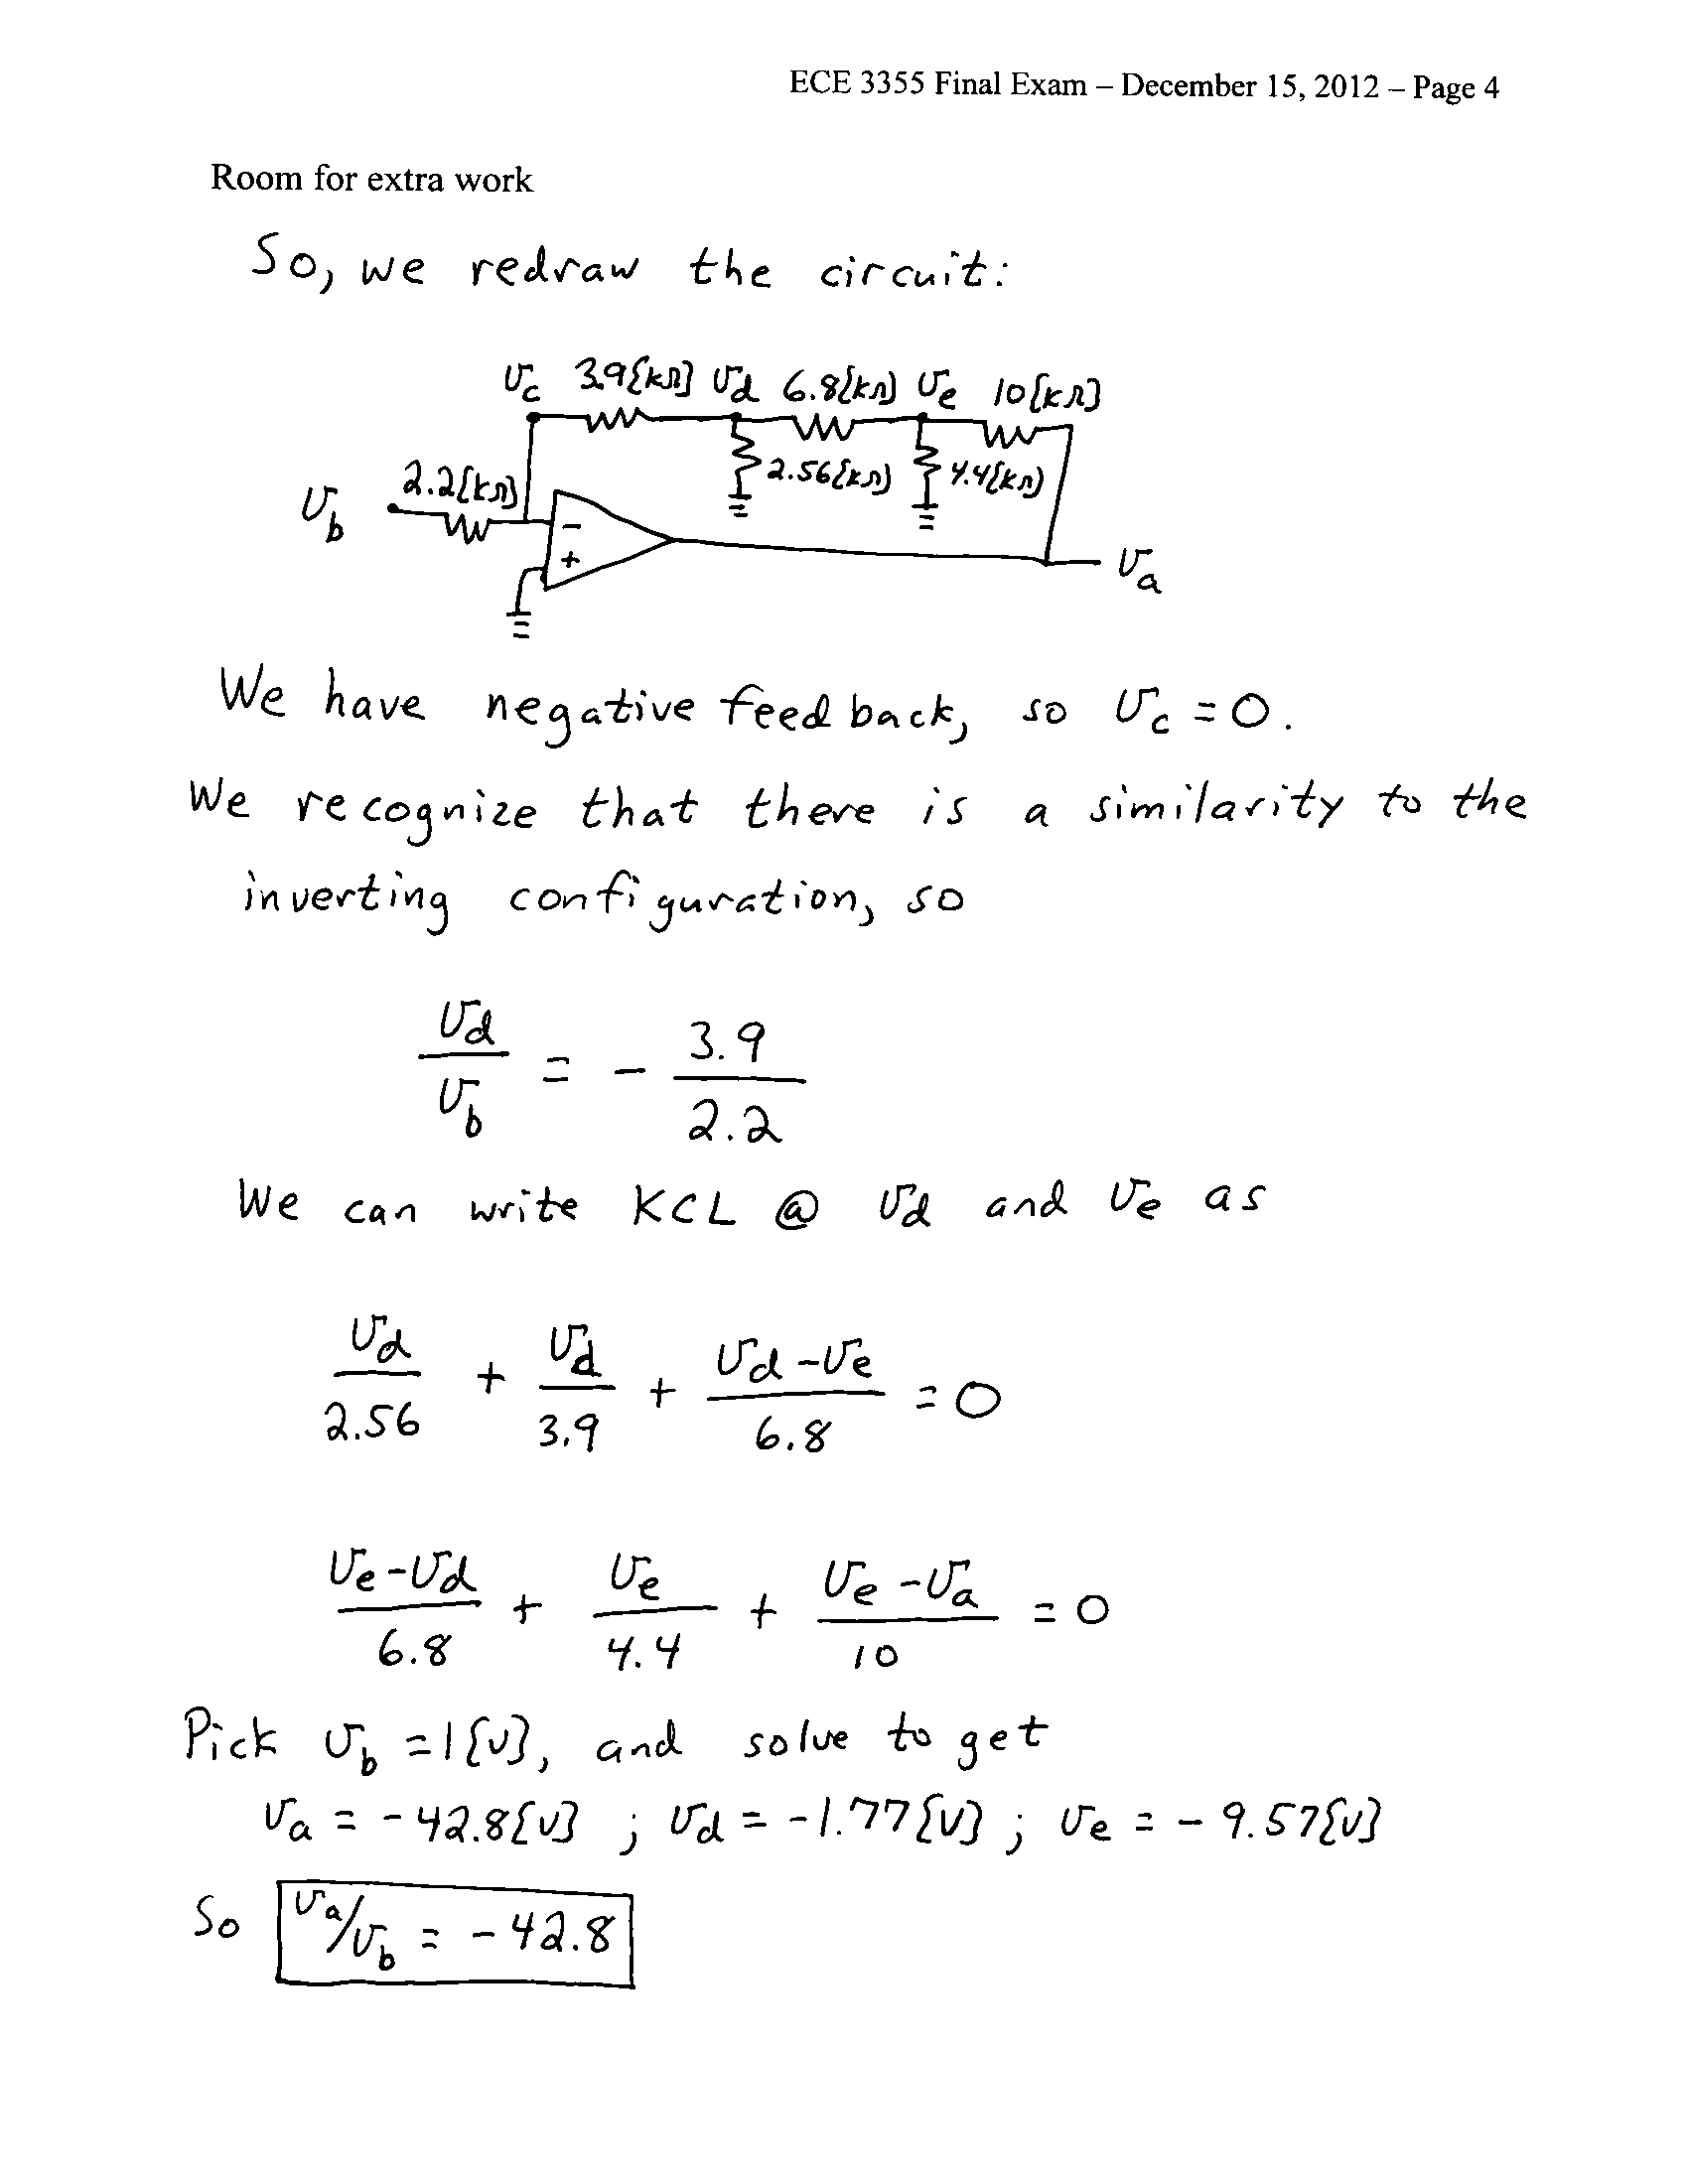 ECE 3355 Final Exam – December 15, 2012 – Page 4
Room for extra work
So, we redraw the circuit:
vc 3.9{kΩ} vd 6.8{kΩ} ve 10{kΩ}
2.2{kΩ} 2.56{kΩ} 4.4{kΩ}
vb
−
+
va
We have negative feedback, so vc = 0.
We recognize that there is a similarity to the
inverting configuration, so
vd/vb = - 3.9/2.2
We can write KCL @ vd and ve as
vd/2.56 + vd/3.9 + (vd - ve)/6.8 = 0
(ve - vd)/6.8 + ve/4.4 + (ve - va)/10 = 0
Pick vb = 1{v}, and solve to get
va = -42.8{v} ; vd = -1.77{v} ; ve = -9.57{v}
So va/vb = -42.8